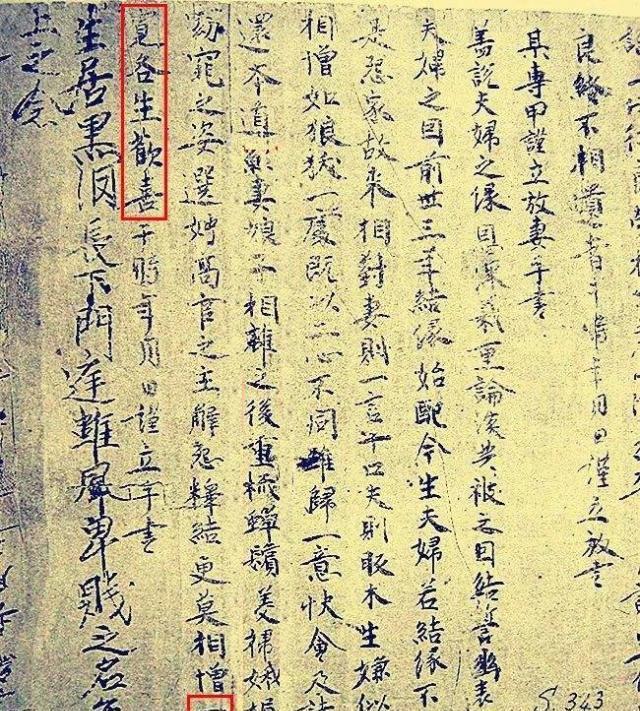 良緣不相遺者于時年月日謹立放書
某專甲謹立放妻手書
蓋說夫婦之緣恩深義重論談共被之因結誓幽遠
夫婦之因前世三年結緣始配今生夫婦若結緣不
是怨家故來相對妻則一言十口夫則木生嫌似
相憎如狼一處既以二心不同難歸一意快會及諸
還本道願妻娘子相離之後重梳蟬鬢美掃娥媚
窈窕之姿選娉高官之主解怨釋結更莫相憎
寬各生歡喜于時年月日謹立手書
生居黑長下門庭雖卑賤之名
上之念
S.343